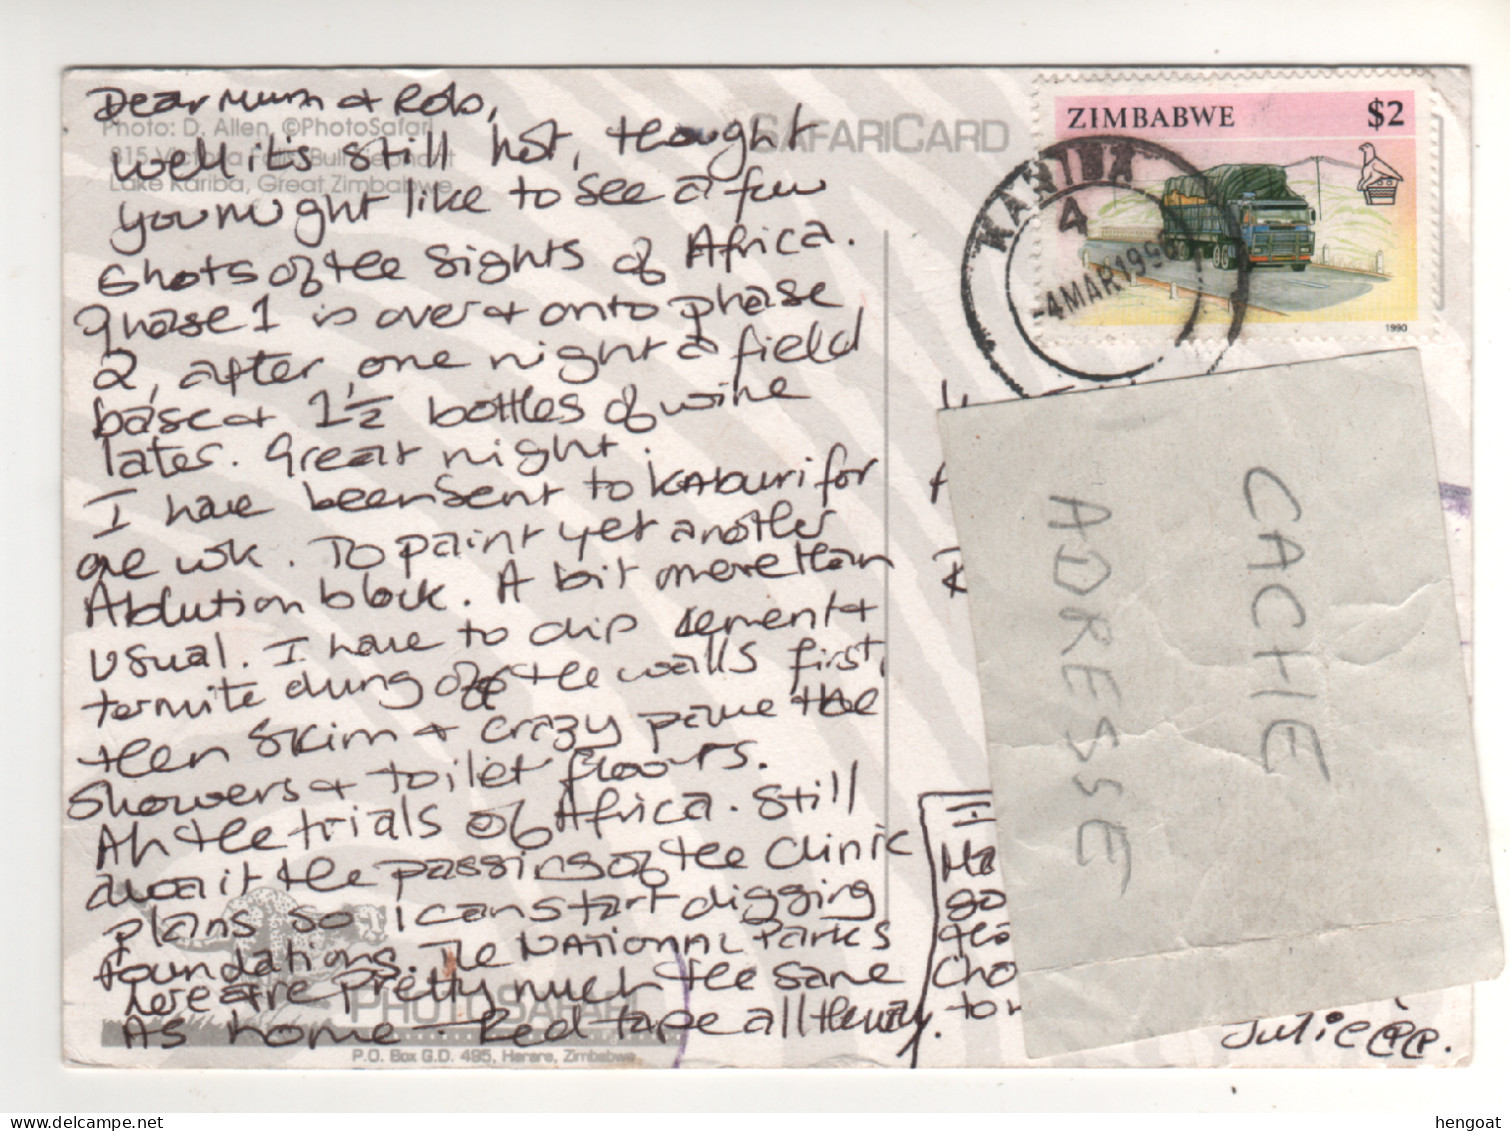 Dear Mum & Rob,
Photo: D. Allen, ©PhotoSafari
well it's still hot, thought
815 Victoria Falls, Bull Elephant
Lake Kariba, Great Zimbabwe
you might like to see a few
shots of the sights of Africa.
phase 1 is over & onto phase
2, after one night a field
base & 1½ bottles of wine
later. Great night.
I have been sent to Kaburi for
one wk. To paint yet another
Ablution block. A bit more than
usual. I have to chip cement &
termite dung off the walls first,
then skim & crazy pave the
showers & toilet floors.
Ah the trials of Africa. Still
await the passing of the clinic
plans so I can start digging
foundations. The NATIONAL PARKS
here are pretty much the same
As home - Red tape all the way.
PHOTOSAFARI
P.O. Box G.D. 495, Harare, Zimbabwe
SAFARICARD
ZIMBABWE $2
1990
KARIBA
4
-4 MAR 199
CACHE
ADRESSE
go
Cho
Julie
hengoat